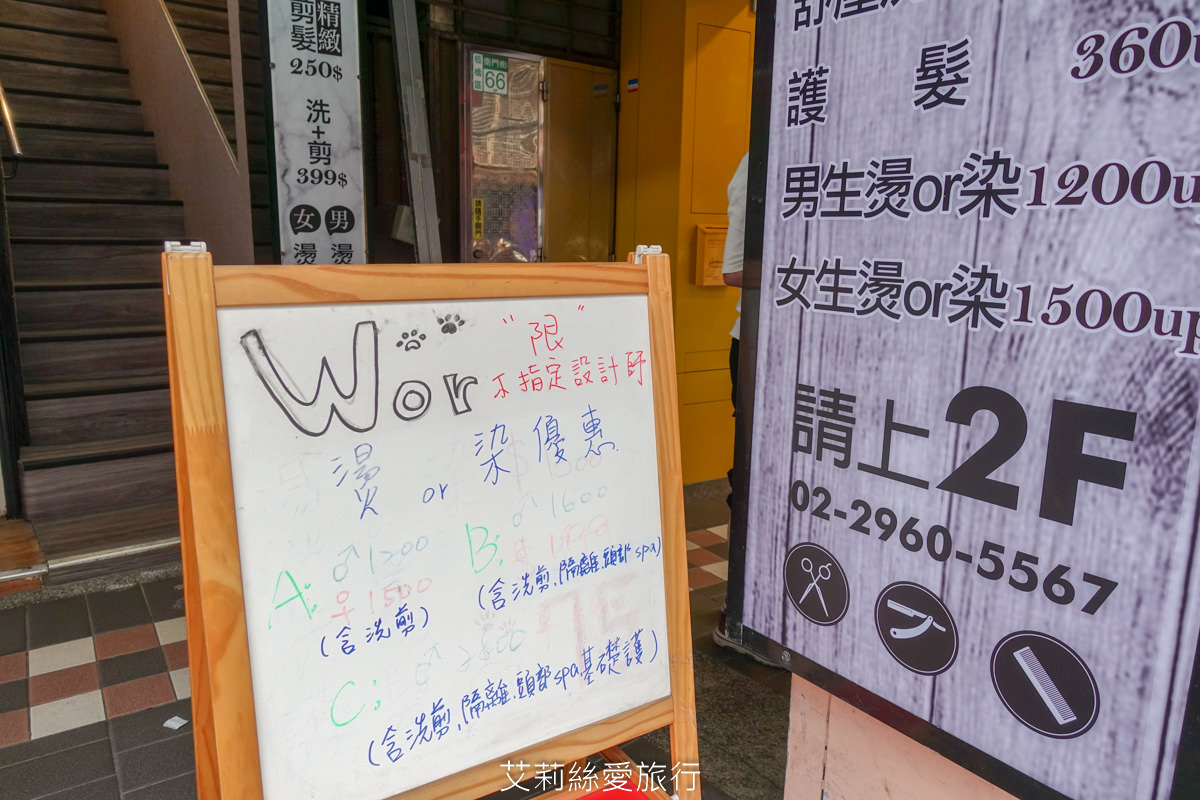 精緻
剪髮
250$
洗+剪
399$
女 男
燙 燙
板橋區
南門街
66
護髮 360u
男生燙or染1200u
女生燙or染1500up
請上2F
02-2960-5567
Wor
"限"
不指定設計師
燙 or 染優惠
A: ♂1200
♀1500
(含洗剪)
B: ♂1600
(含洗剪、隔離、頭部spa)
C: ♂
(含洗剪、隔離、頭部spa基礎護)
艾莉絲愛旅行